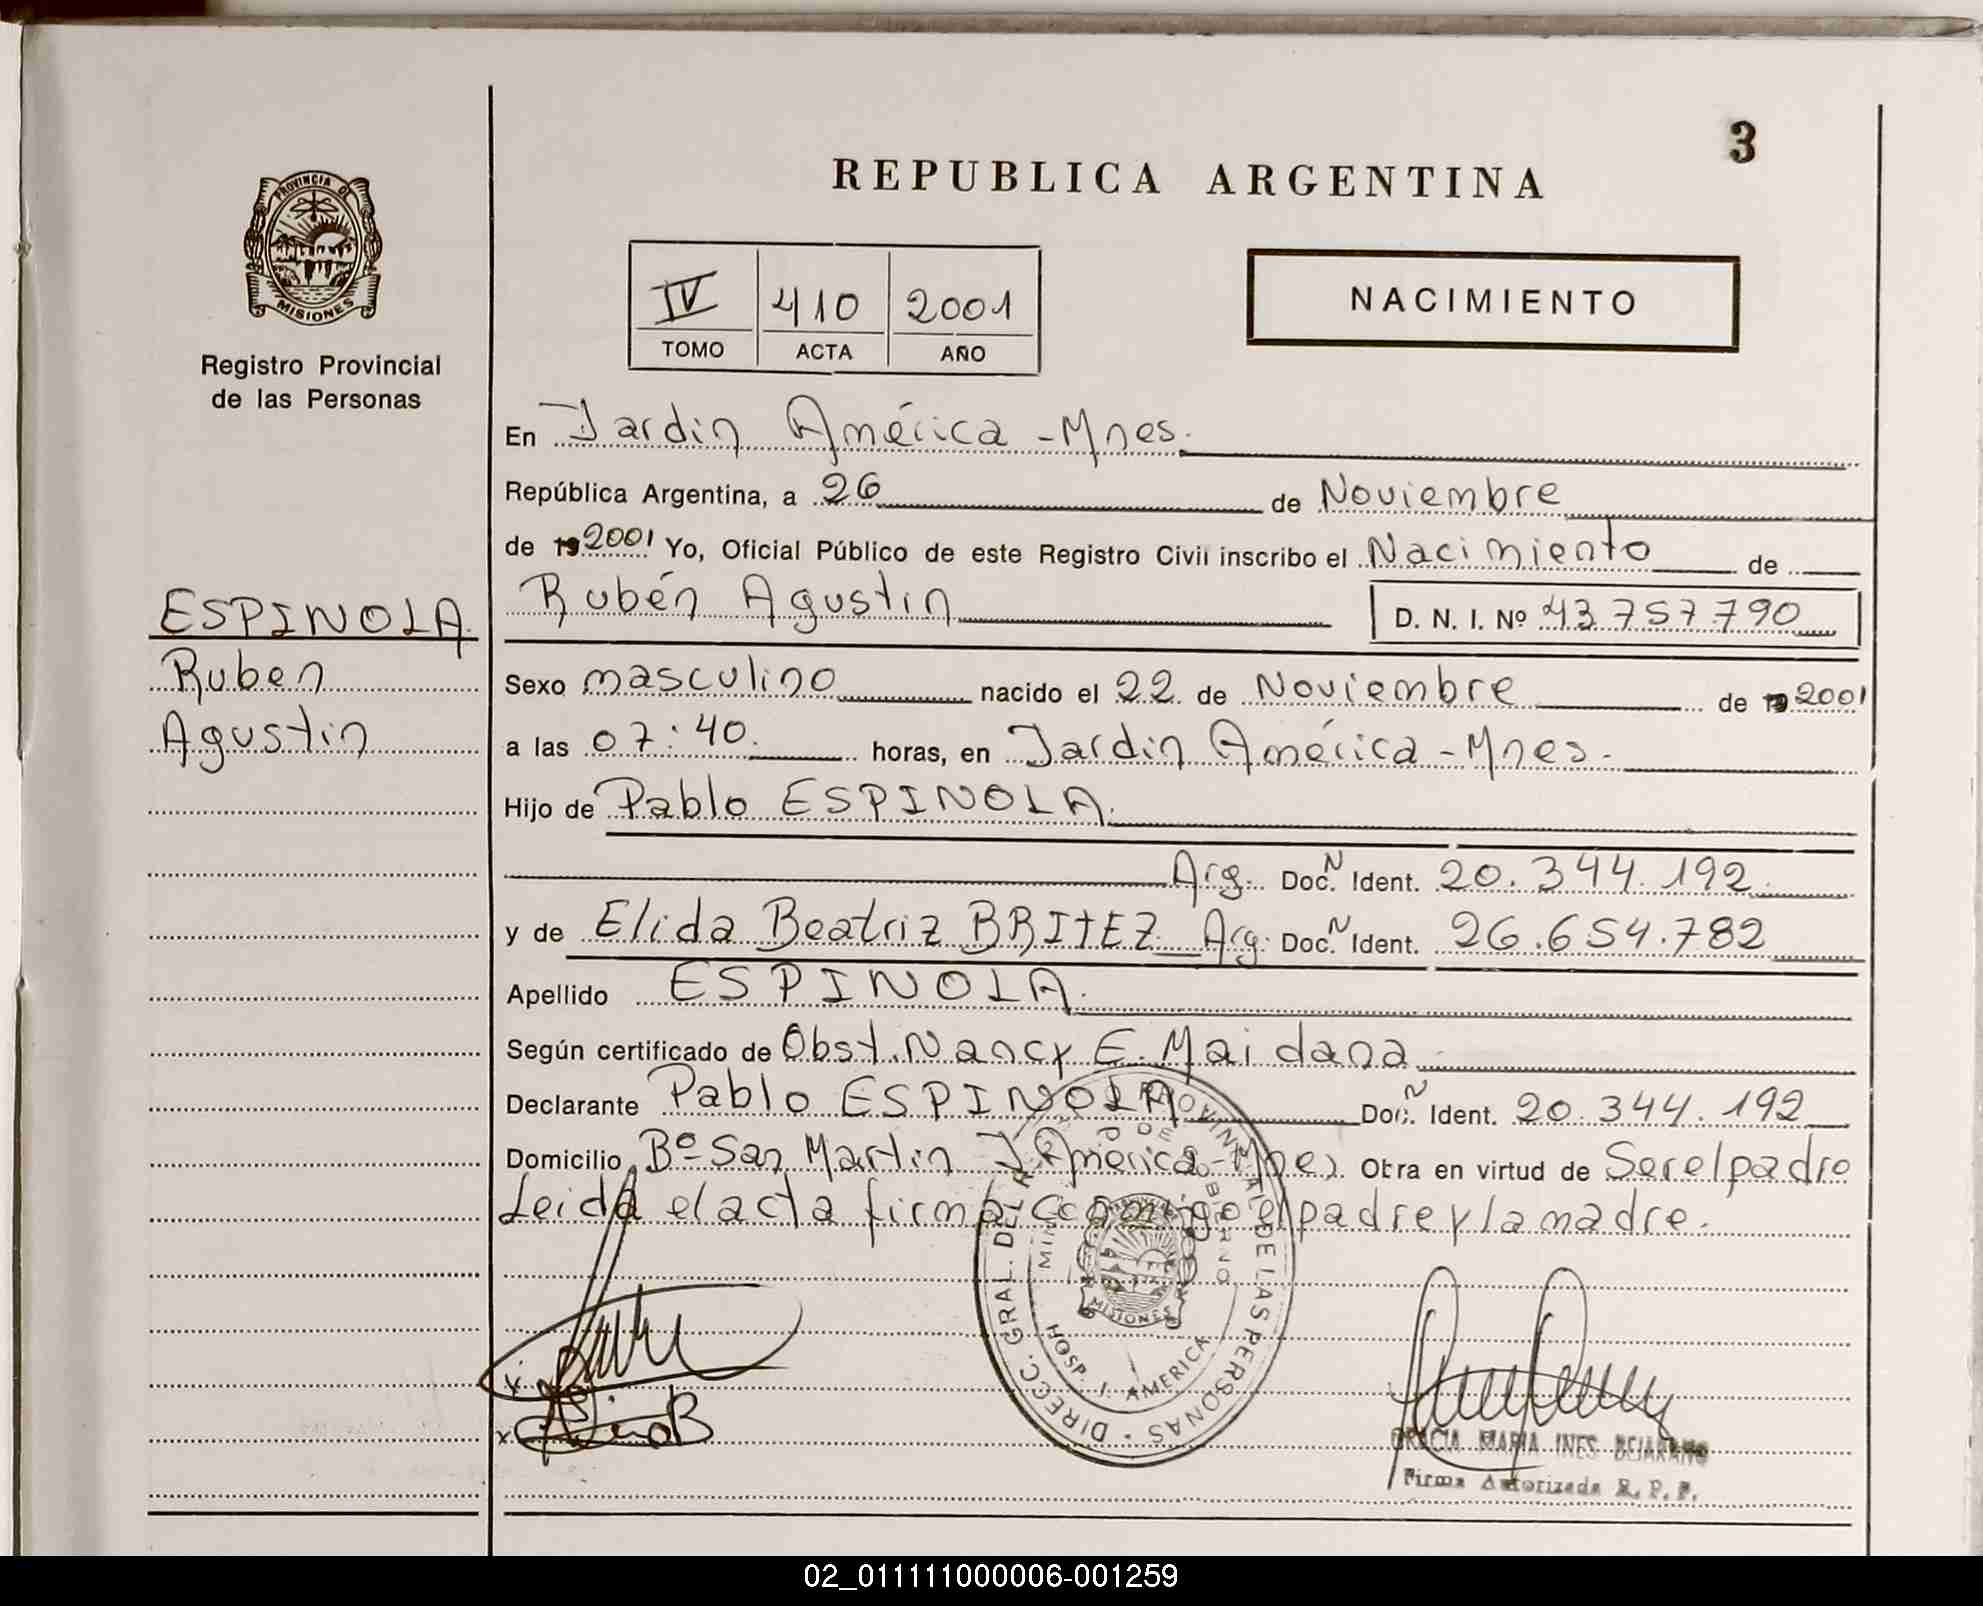 3
REPUBLICA ARGENTINA
PROVINCIA DE
MISIONES
Registro Provincial
de las Personas
IV 410 2001
TOMO ACTA AÑO
NACIMIENTO
En Jardin América - Mnes.
República Argentina, a 26 de Noviembre
de 19 2001 Yo, Oficial Público de este Registro Civil inscribo el Nacimiento de
Rubén Agustin D. N. I. Nº 43 757 790
ESPINOLA
Ruben
Agustin
Sexo masculino nacido el 22 de Noviembre de 19 2001
a las 07:40. horas, en Jardin América - Mnes.
Hijo de Pablo ESPINOLA.
Arg. Doc. N Ident. 20.344.192
y de Elida Beatriz BRITEZ Arg. Doc. N Ident. 26.654.782
Apellido ESPINOLA.
Según certificado de Obst. Nancy E. Maidana
Declarante Pablo ESPINOLA Doc. N Ident. 20.344.192
Domicilio Bº San Martin J. América - Mnes Otra en virtud de Ser el padre
Leida el acta firma conmigo el padre y la madre.
DIRECC. GRAL. DEL PROVINCIAL DE LAS PERSONAS
DE GOBIERNO
MISIONES
HOSP. J. AMERICA
GRACIA MARIA INES BEJARANO
Firma Autorizada R. P. P.
02_011111000006-001259